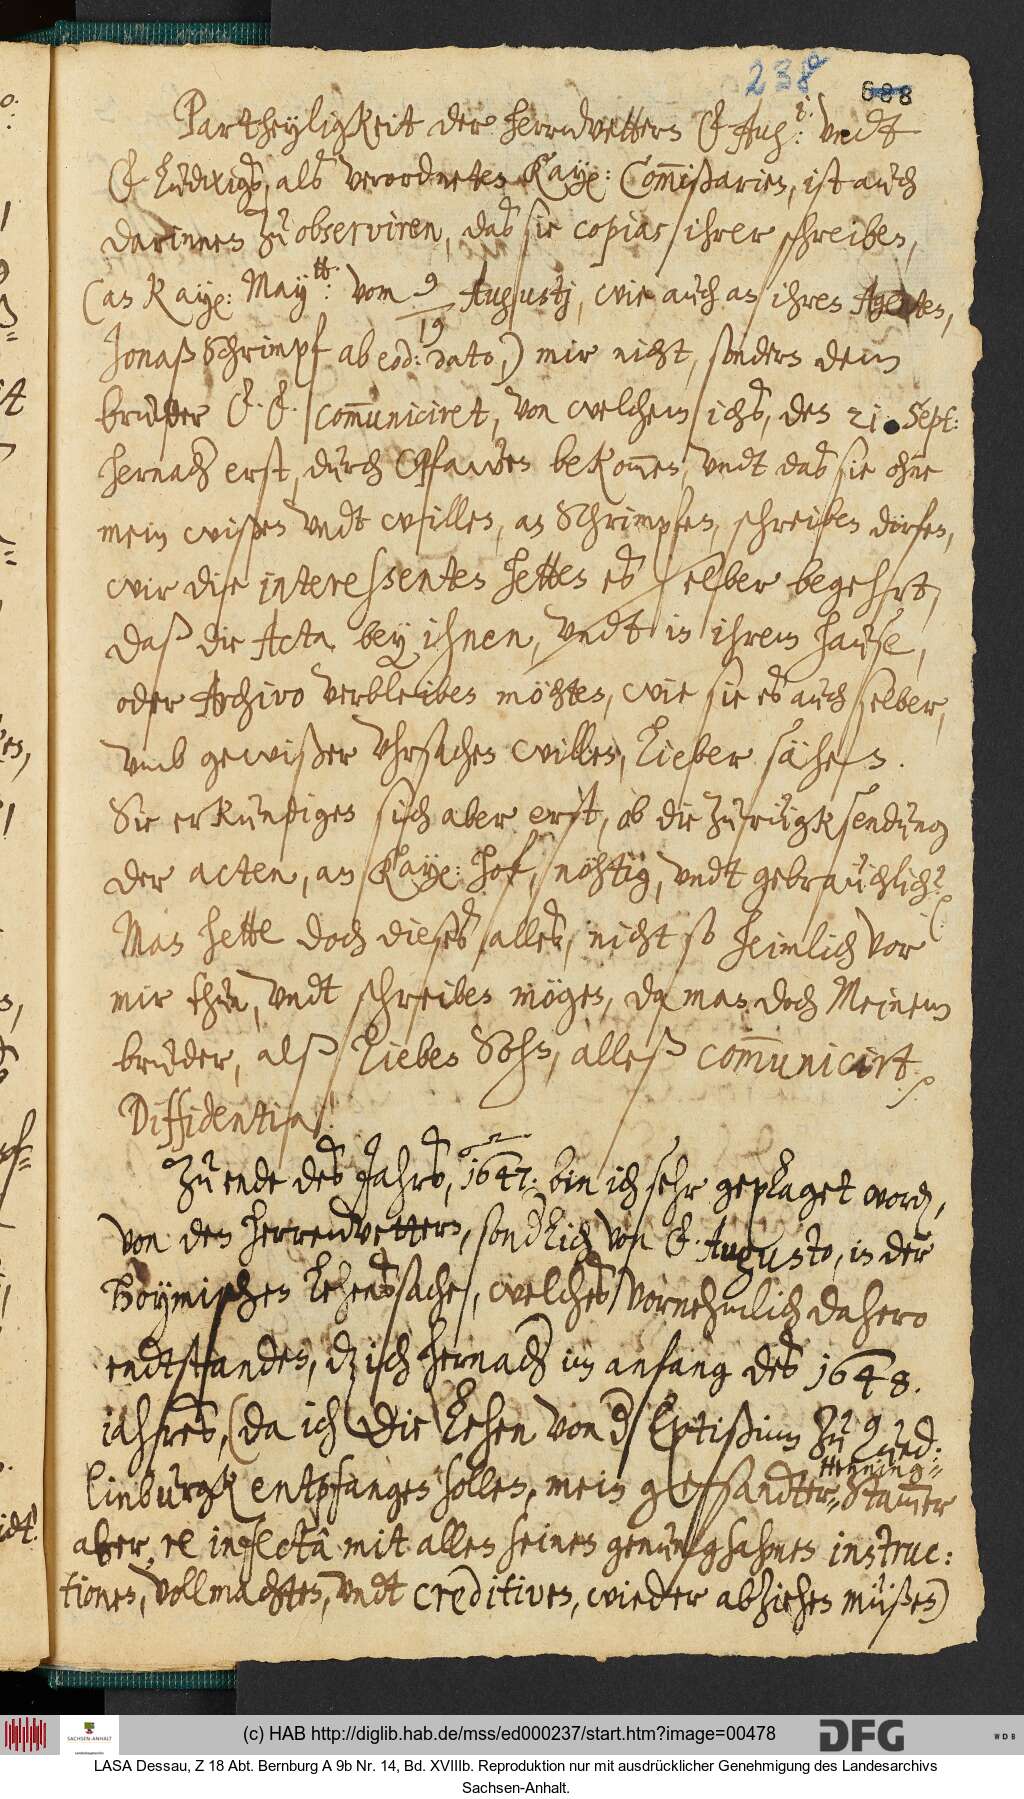 238
688
Partheyligkeit der herrnvettern F. Aug: i vndt
F. Ludwigs, als verordneten Kayß: Commißarien, ist auch
darinnen zu observiren, das sie copias ihrer schreiben,
(an Kayß: Maytt: vom 9/19 Augustj, wie auch an ihren Agenten,
Jonaß Schrimpf ab eod: dato,) mir nicht, sondern dem
bruder F. F. communiciret, von welchem ichs, den 21. Sept:
hernach erst, durch Pfawen bekommen, vndt das sie ohne
mein wißen vndt willen, an Schrimpfen, schreiben dörfen,
wir die interessenten hetten es selber begehrt,
daß die Acta bey ihnen, vndt in ihrem hause,
oder Archivo verbleiben möchten, wie sie es auch selber,
vmb gewißer vhrsachen willen, lieber sähen.
Sie erkundigen sich aber erst, ob die zurügksendung
der acten, an Kayß: hof, nöhtig, vndt gebraüchlich?
Man hette doch dieses alles, nicht so heimlich vor
mir thun, vndt schreiben mögen, da man doch Meinem
bruder, alß lieben Sohn, alleß communicirt.
Diffidentia!
Zu ende des Jahrs, 1647: bin ich sehr geplaget word,
von den herrenvettern, sondlich von F. Augusto, in der
Hoymischen Lehenssache, welches vornehmlich dahero
endtstanden, dz ich hernach im anfang des 1648.
iahres, (da ich die Lehen von d Eptißinn zu Qued:
linburgk entpfangen sollen, mein gesandter Henning Stammer
aber, re infectâ mit allen seinen genungsahmen instruc:
tionen, vollmachten, vndt creditiven, wieder abziehen müßen)
(c) HAB http://diglib.hab.de/mss/ed000237/start.htm?image=00478
SACHSEN-ANHALT
DFG
WDB
LASA Dessau, Z 18 Abt. Bernburg A 9b Nr. 14, Bd. XVIIIb. Reproduktion nur mit ausdrücklicher Genehmigung des Landesarchivs
Sachsen-Anhalt.